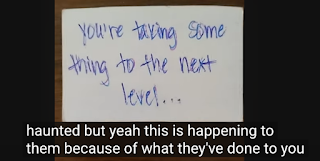 you're taking some
thing to the next
level...
haunted but yeah this is happening to
them because of what they've done to you